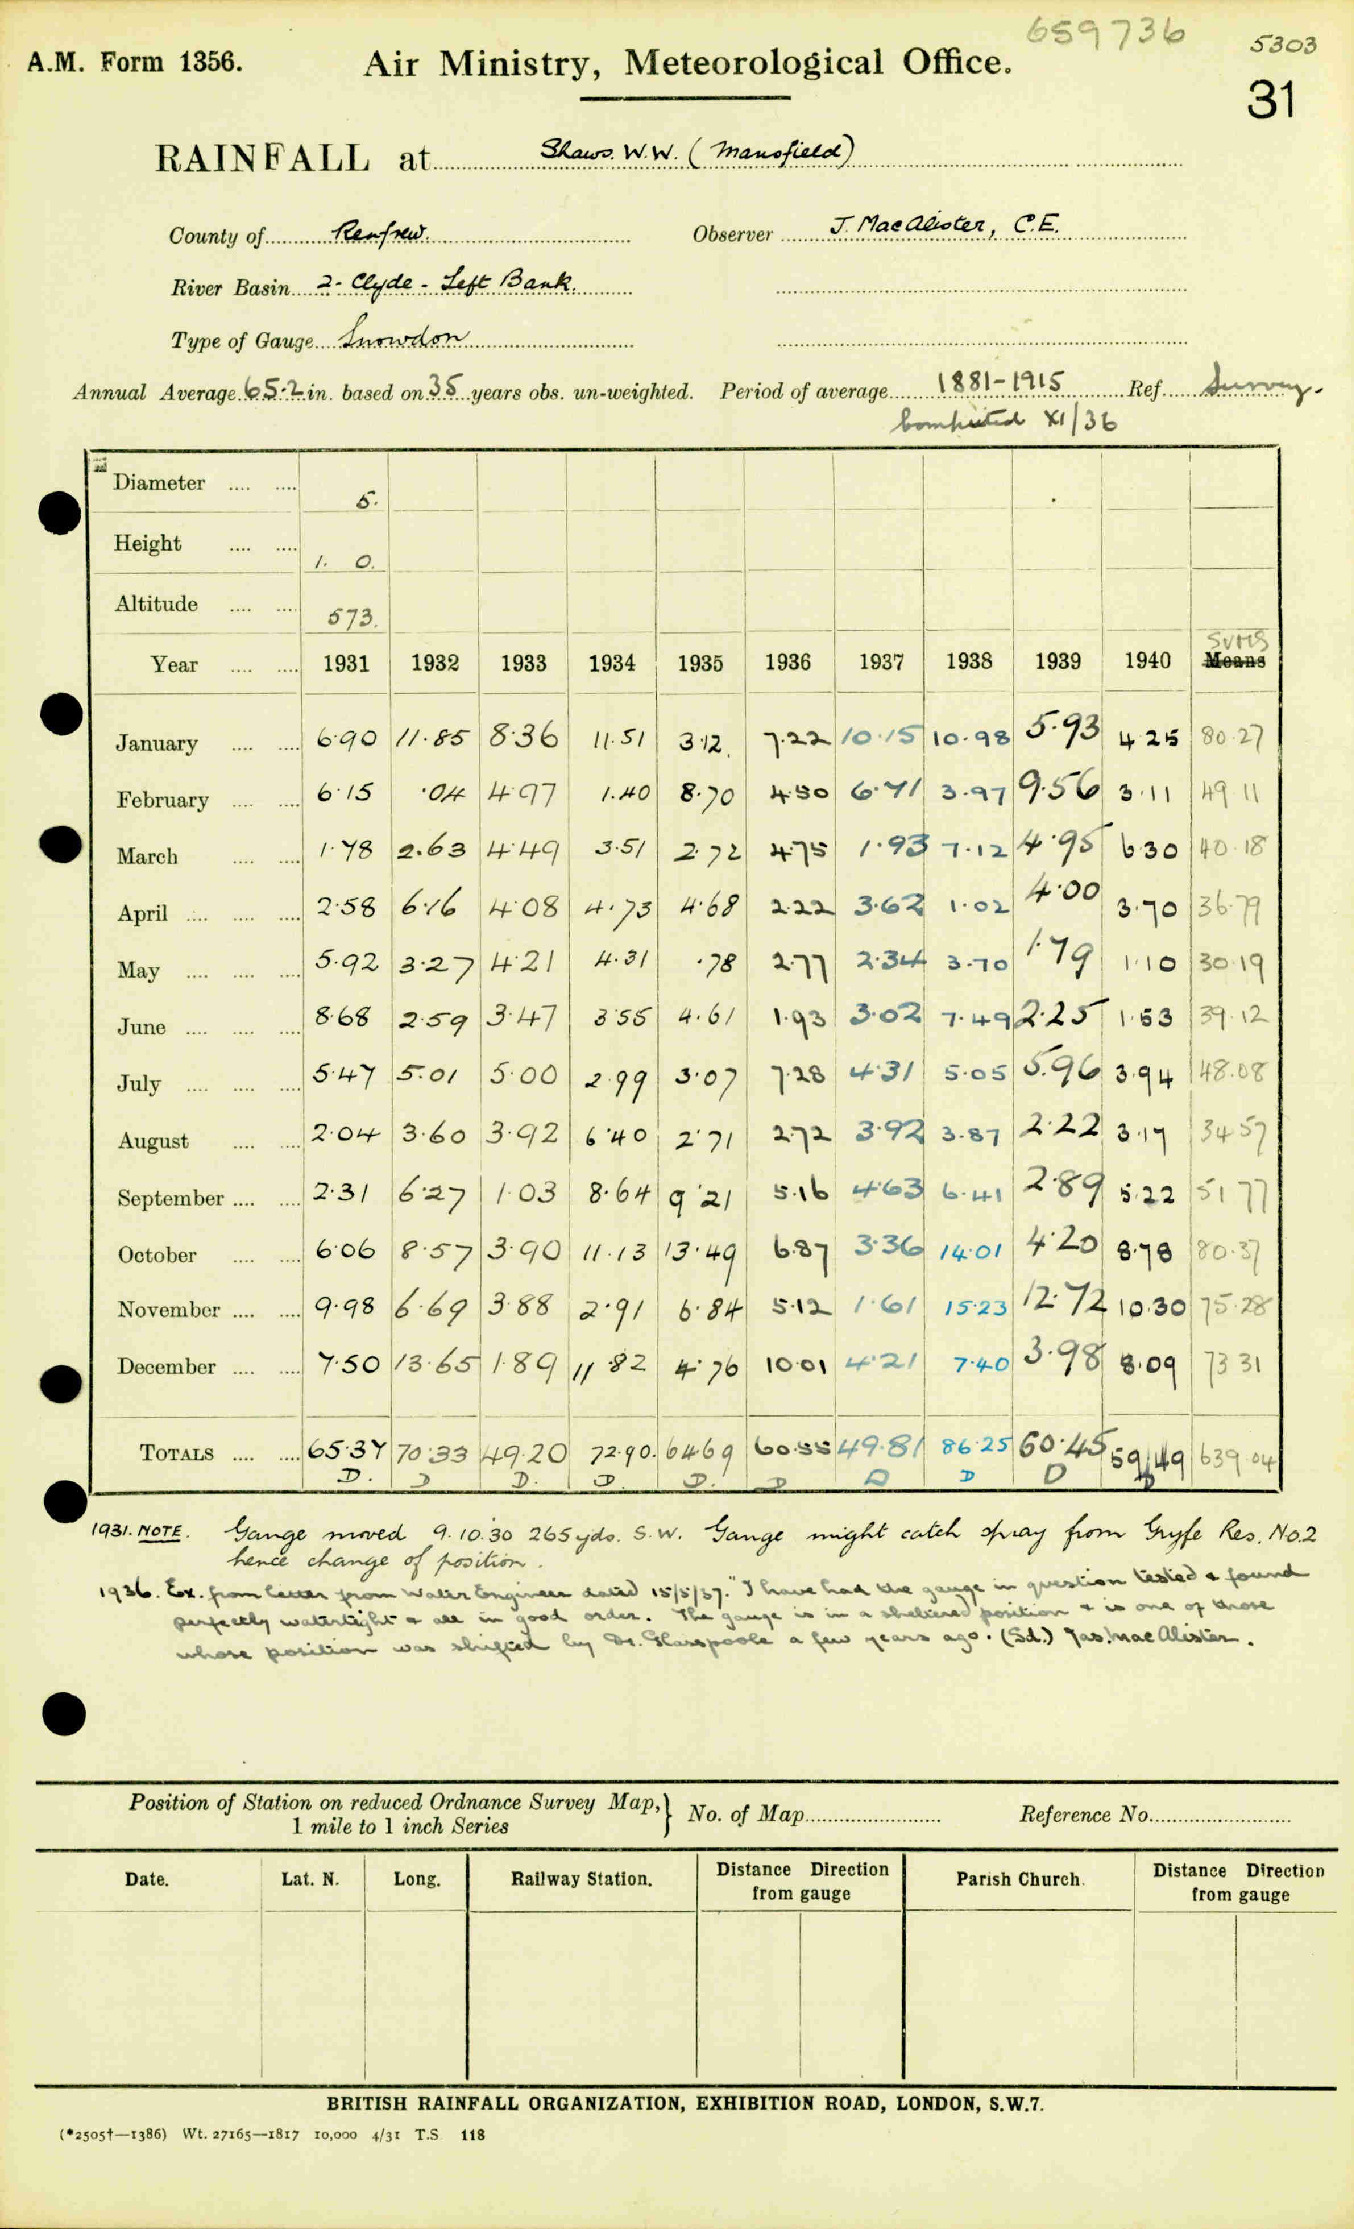 659736
5303
A.M. Form 1356. Air Ministry, Meteorological Office.
31
RAINFALL at Shaws. W.W. (Mansfield)
County of Renfrew. Observer J. MacAlister, C.E.
River Basin 2- Clyde - Left Bank.
Type of Gauge Snowdon
Annual Average 65.2 in. based on 35 years obs. un-weighted. Period of average 1881-1915 Ref. Survey.
Computed XI/36
Diameter 5.
Height 1. 0.
Altitude 573.
SUMS
Year 1931 1932 1933 1934 1935 1936 1937 1938 1939 1940 Means
January 6.90 11.85 8.36 11.51 3.12 7.22 10.15 10.98 5.93 4.25 80.27
February 6.15 .04 4.97 1.40 8.70 4.50 6.71 3.97 9.56 3.11 49.11
March 1.78 2.63 4.49 3.51 2.72 4.75 1.93 7.12 4.95 6.30 40.18
April 2.58 6.16 4.08 4.73 4.68 2.22 3.62 1.02 4.00 3.70 36.79
May 5.92 3.27 4.21 4.31 .78 2.77 2.34 3.70 1.79 1.10 30.19
June 8.68 2.59 3.47 3.55 4.61 1.93 3.02 7.49 2.25 1.53 39.12
July 5.47 5.01 5.00 2.99 3.07 7.28 4.31 5.05 5.96 3.94 48.08
August 2.04 3.60 3.92 6.40 2.71 2.72 3.92 3.87 2.22 3.17 34.57
September 2.31 6.27 1.03 8.64 9.21 5.16 4.63 6.41 2.89 5.22 51.77
October 6.06 8.57 3.90 11.13 13.49 6.87 3.36 14.01 4.20 8.78 80.37
November 9.98 6.69 3.88 2.91 6.84 5.12 1.61 15.23 12.72 10.30 75.28
December 7.50 13.65 1.89 11.82 4.76 10.01 4.21 7.40 3.98 8.09 73.31
TOTALS 65.37 70.33 49.20 72.90. 64.69 60.55 49.81 86.25 60.45 59.49 639.04
D. D D. D D. D D D D D
1931. NOTE. Gauge moved 9.10.30 265 yds. S.W. Gauge might catch spray from Gryfe Res. No.2
hence change of position.
1936. Ex. from letter from Water Engineer dated 15/5/37. "I have had the gauge in question tested & found
perfectly watertight & all in good order. The gauge is in a sheltered position & is one of those
whose position was shifted by Dr. Glasspoole a few years ago. (Sd.) Jas. MacAlister.
Position of Station on reduced Ordnance Survey Map,} No. of Map Reference No.
1 mile to 1 inch Series
Date. Lat. N. Long. Railway Station. Distance Direction from gauge Parish Church. Distance Direction from gauge
BRITISH RAINFALL ORGANIZATION, EXHIBITION ROAD, LONDON, S.W.7.
(*2505†—1386) Wt. 27165—1817 10,000 4/31 T.S. 118